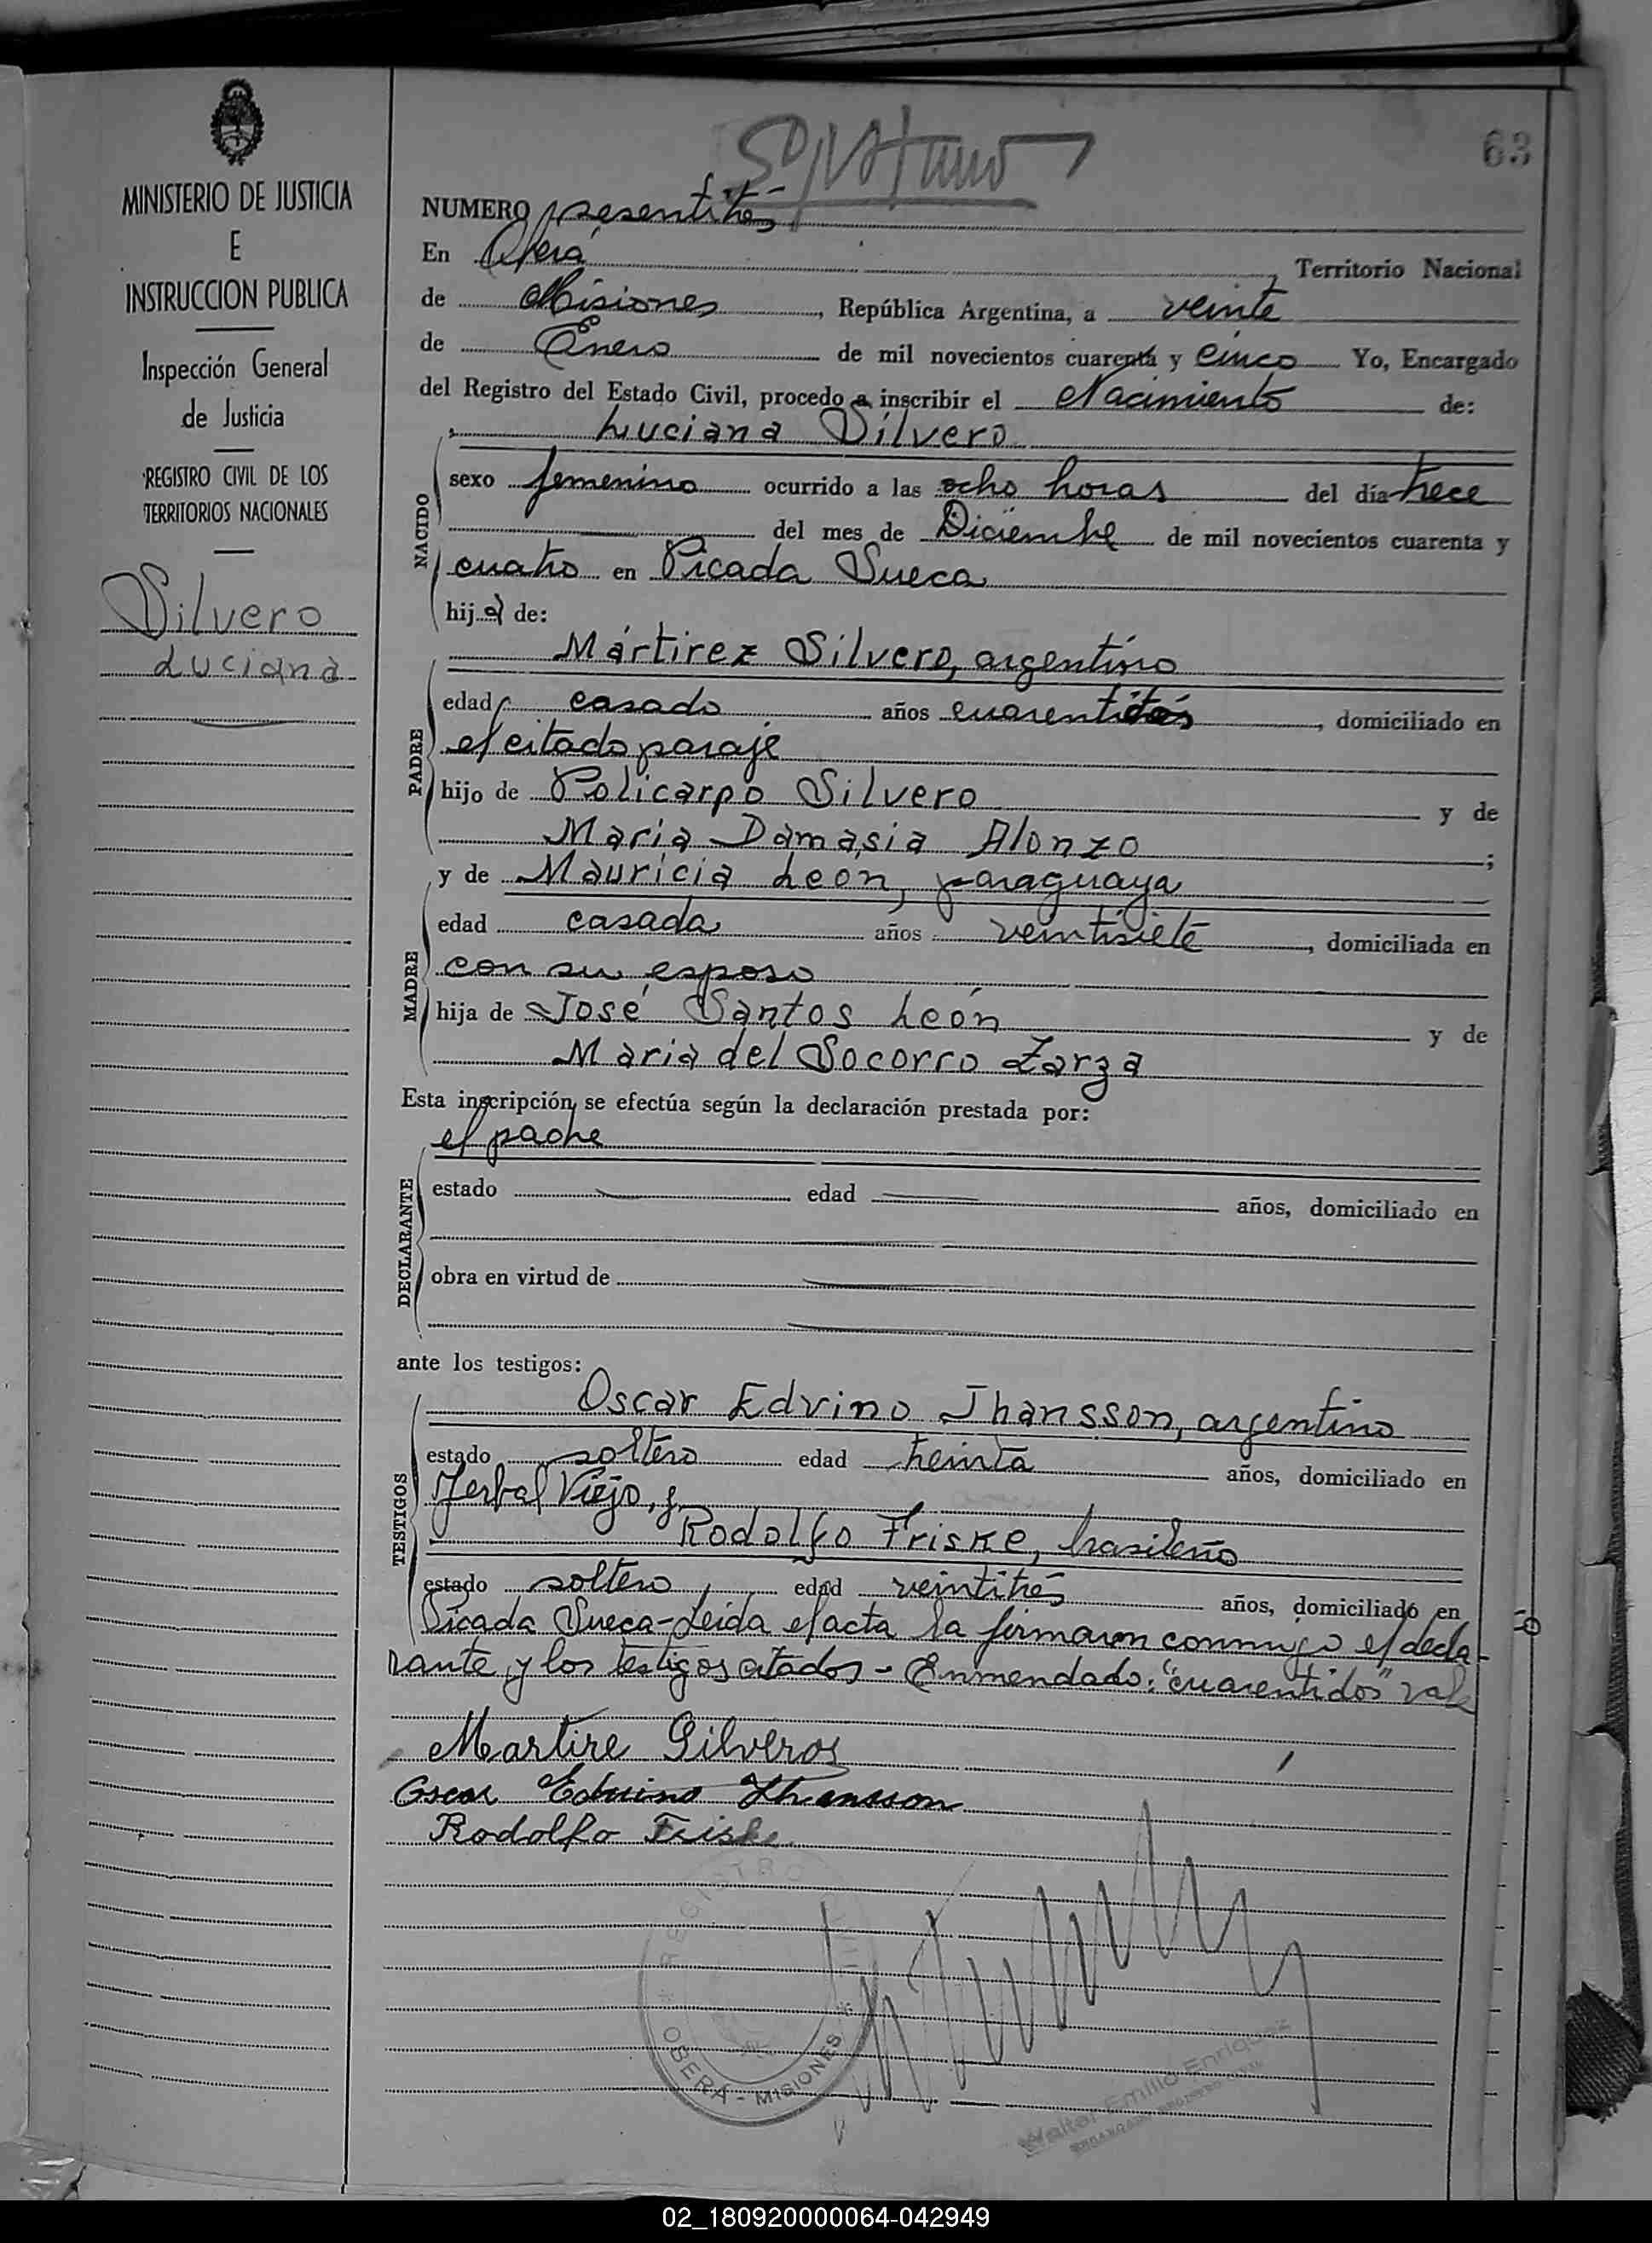 63
MINISTERIO DE JUSTICIA
E
INSTRUCCION PUBLICA
Inspección General
de Justicia
REGISTRO CIVIL DE LOS
TERRITORIOS NACIONALES
Silvero
Luciana
NUMERO sesentitrés
En Oberá, Territorio Nacional
de Misiones, República Argentina, a veinte
de Enero de mil novecientos cuarenta y cinco Yo, Encargado
del Registro del Estado Civil, procedo a inscribir el Nacimiento de:
Luciana Silvero
NACIDO
sexo femenino ocurrido a las ocho horas del día trece
del mes de Diciembre de mil novecientos cuarenta y
cuatro en Picada Sueca
hija de:
Mártirez Silvero, argentino
PADRE
edad casado años cuarentidós, domiciliado en
el citado paraje
hijo de Policarpo Silvero y de
Maria Damasia Alonzo;
y de Mauricia León, paraguaya
MADRE
edad casada años veintisiete, domiciliada en
con su esposo
hija de José Santos León y de
Maria del Socorro Zarza
Esta inscripción se efectúa según la declaración prestada por:
el padre
DECLARANTE
estado edad años, domiciliado en
obra en virtud de
ante los testigos:
Oscar Edvino Jhansson, argentino
TESTIGOS
estado soltero edad treinta años, domiciliado en
Yerbal Viejo, y
Rodolfo Friske, brasileño
estado soltero, edad veintitrés años, domiciliado en
Picada Sueca-Leida el acta la firmaron conmigo el decla-
rante y los testigos citados - Enmendado: "cuarentidos" vale
Martire Silveros
Oscar Edvino Jhansson
Rodolfo Friske
REGISTRO CIVIL
OBERA - MISIONES
Walter Emilio Enriquez
02_180920000064-042949